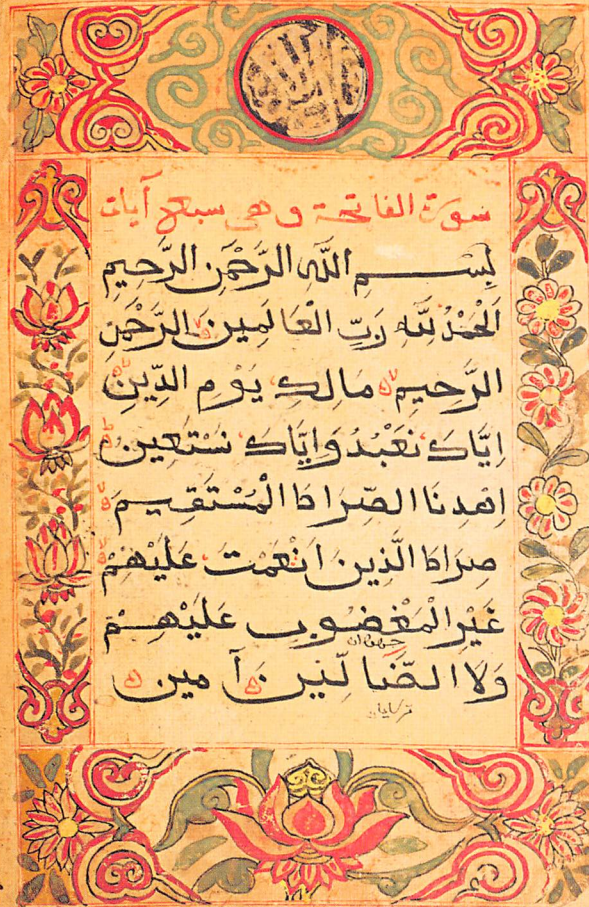 سورة الفاتحة وهي سبع آيات
بِسْمِ اللّٰهِ الرَّحْمٰنِ الرَّحِيمِ
اَلْحَمْدُ لِلّٰهِ رَبِّ الْعَالَمِينَ الرَّحْمٰنِ
الرَّحِيمِ مَالِكِ يَوْمِ الدِّينِ
اِيَّاكَ نَعْبُدُ وَاِيَّاكَ نَسْتَعِينُ
اِهْدِنَا الصِّرَاطَ الْمُسْتَقِيمَ
صِرَاطَ الَّذِينَ اَنْعَمْتَ عَلَيْهِمْ
غَيْرِ الْمَغْضُوبِ عَلَيْهِمْ
وَلَا الضَّالِّينَ آمين